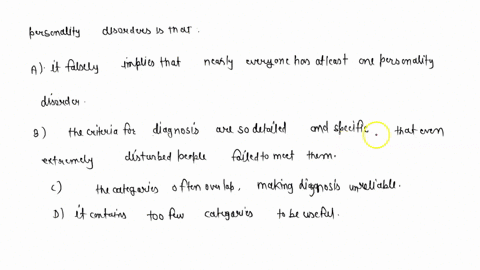 personality disorders is that.
A). it falsely implies that nearly everyone has atleast one personality
disorder.
B) the criteria for diagnosis are so detailed and specific, that even
extremely disturbed people failed to meet them.
C) the categories often overlap, making diagnosis unreliable.
D) it contains too few categories to be useful.